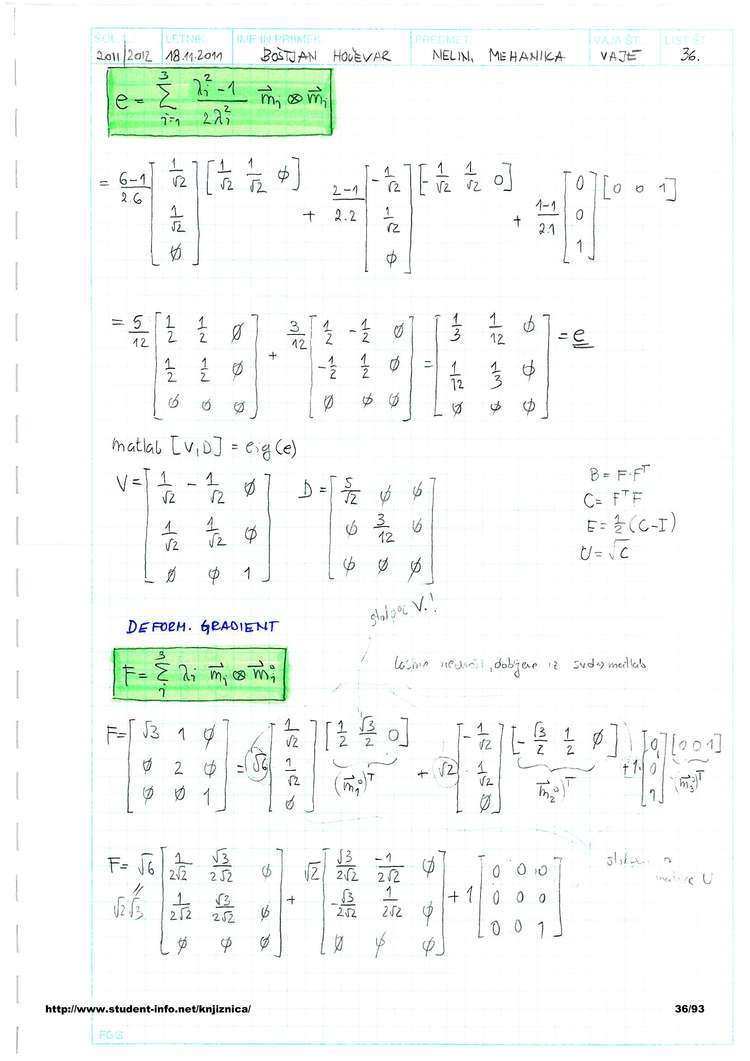 ŠOL. L. LETNIK IME IN PRIIMEK PREDMET VAJA ŠT. LIST ŠT.
2011/2012 18.11.2011 BOŠTJAN HOČEVAR NELIN. MEHANIKA VAJE 36.
e = \sum_{i=1}^{3} \frac{λ_i^2 - 1}{2λ_i^2} \vec{m}_i ⊗ \vec{m}_i
= \frac{6-1}{2.6} [1/√2; 1/√2; ∅] [1/√2 1/√2 ∅] + \frac{2-1}{2.2} [-1/√2; 1/√2; ∅] [-1/√2 1/√2 0] + \frac{1-1}{2.1} [0; 0; 1] [0 0 1]
= 5/12 [1/2 1/2 ∅; 1/2 1/2 ∅; ∅ ∅ ∅] + 3/12 [1/2 -1/2 ∅; -1/2 1/2 ∅; ∅ ∅ ∅] = [1/3 1/12 ∅; 1/12 1/3 ∅; ∅ ∅ ∅] = e
matlab [V,D] = eig(e)
V = [1/√2 -1/√2 ∅; 1/√2 1/√2 ∅; ∅ ∅ 1] D = [5/√2 ∅ ∅; ∅ 3/12 ∅; ∅ ∅ ∅]
B = F·F^T
C = F^T F
E = 1/2 (C-I)
U = √C
V.!
DEFORM. GRADIENT
F = \sum_{i}^{3} λ_i \vec{m}_i ⊗ \vec{m}_i^0
dobljene iz matlab
F = [√3 1 ∅; ∅ 2 ∅; ∅ ∅ 1] = √6 [1/√2; 1/√2; ∅] [1/2 √3/2 0] + √2 [-1/√2; 1/√2; ∅] [-√3/2 1/2 ∅] + 1· [0; 0; 1] [0 0 1]
(\vec{m}_1^0)^T (\vec{m}_2^0)^T (\vec{m}_3^0)^T
F = √6 [1/2√2 √3/2√2 ∅; 1/2√2 √3/2√2 ∅; ∅ ∅ ∅] + √2 [√3/2√2 -1/2√2 ∅; -√3/2√2 1/2√2 ∅; ∅ ∅ ∅] + 1 [0 0 0; 0 0 0; 0 0 1]
√2 √3
U
http://www.student-info.net/knjiznica/ 36/93
FGG